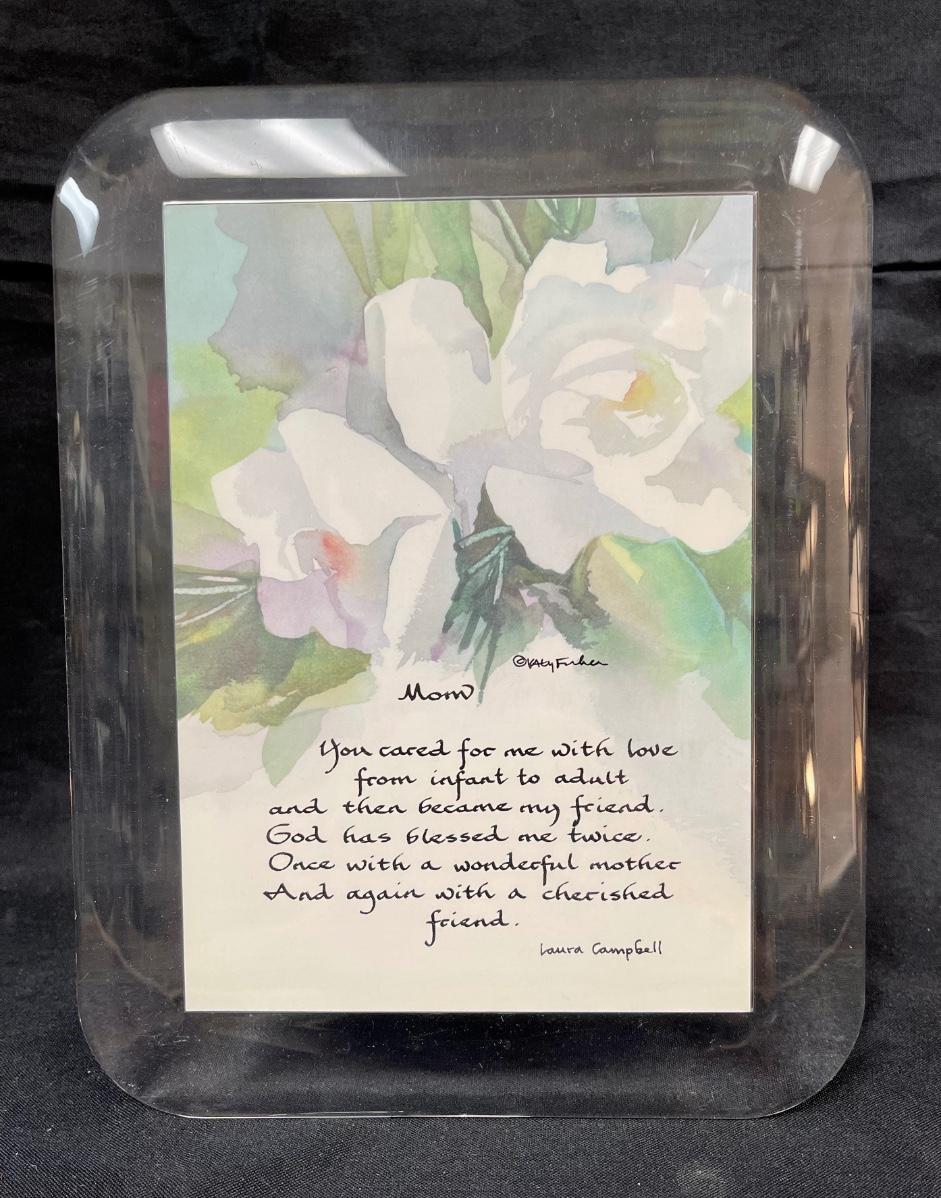 ©Katy Fisher
Mom
You cared for me with love
from infant to adult
and then became my friend.
God has blessed me twice.
Once with a wonderful mother
And again with a cherished
friend.
Laura Campbell